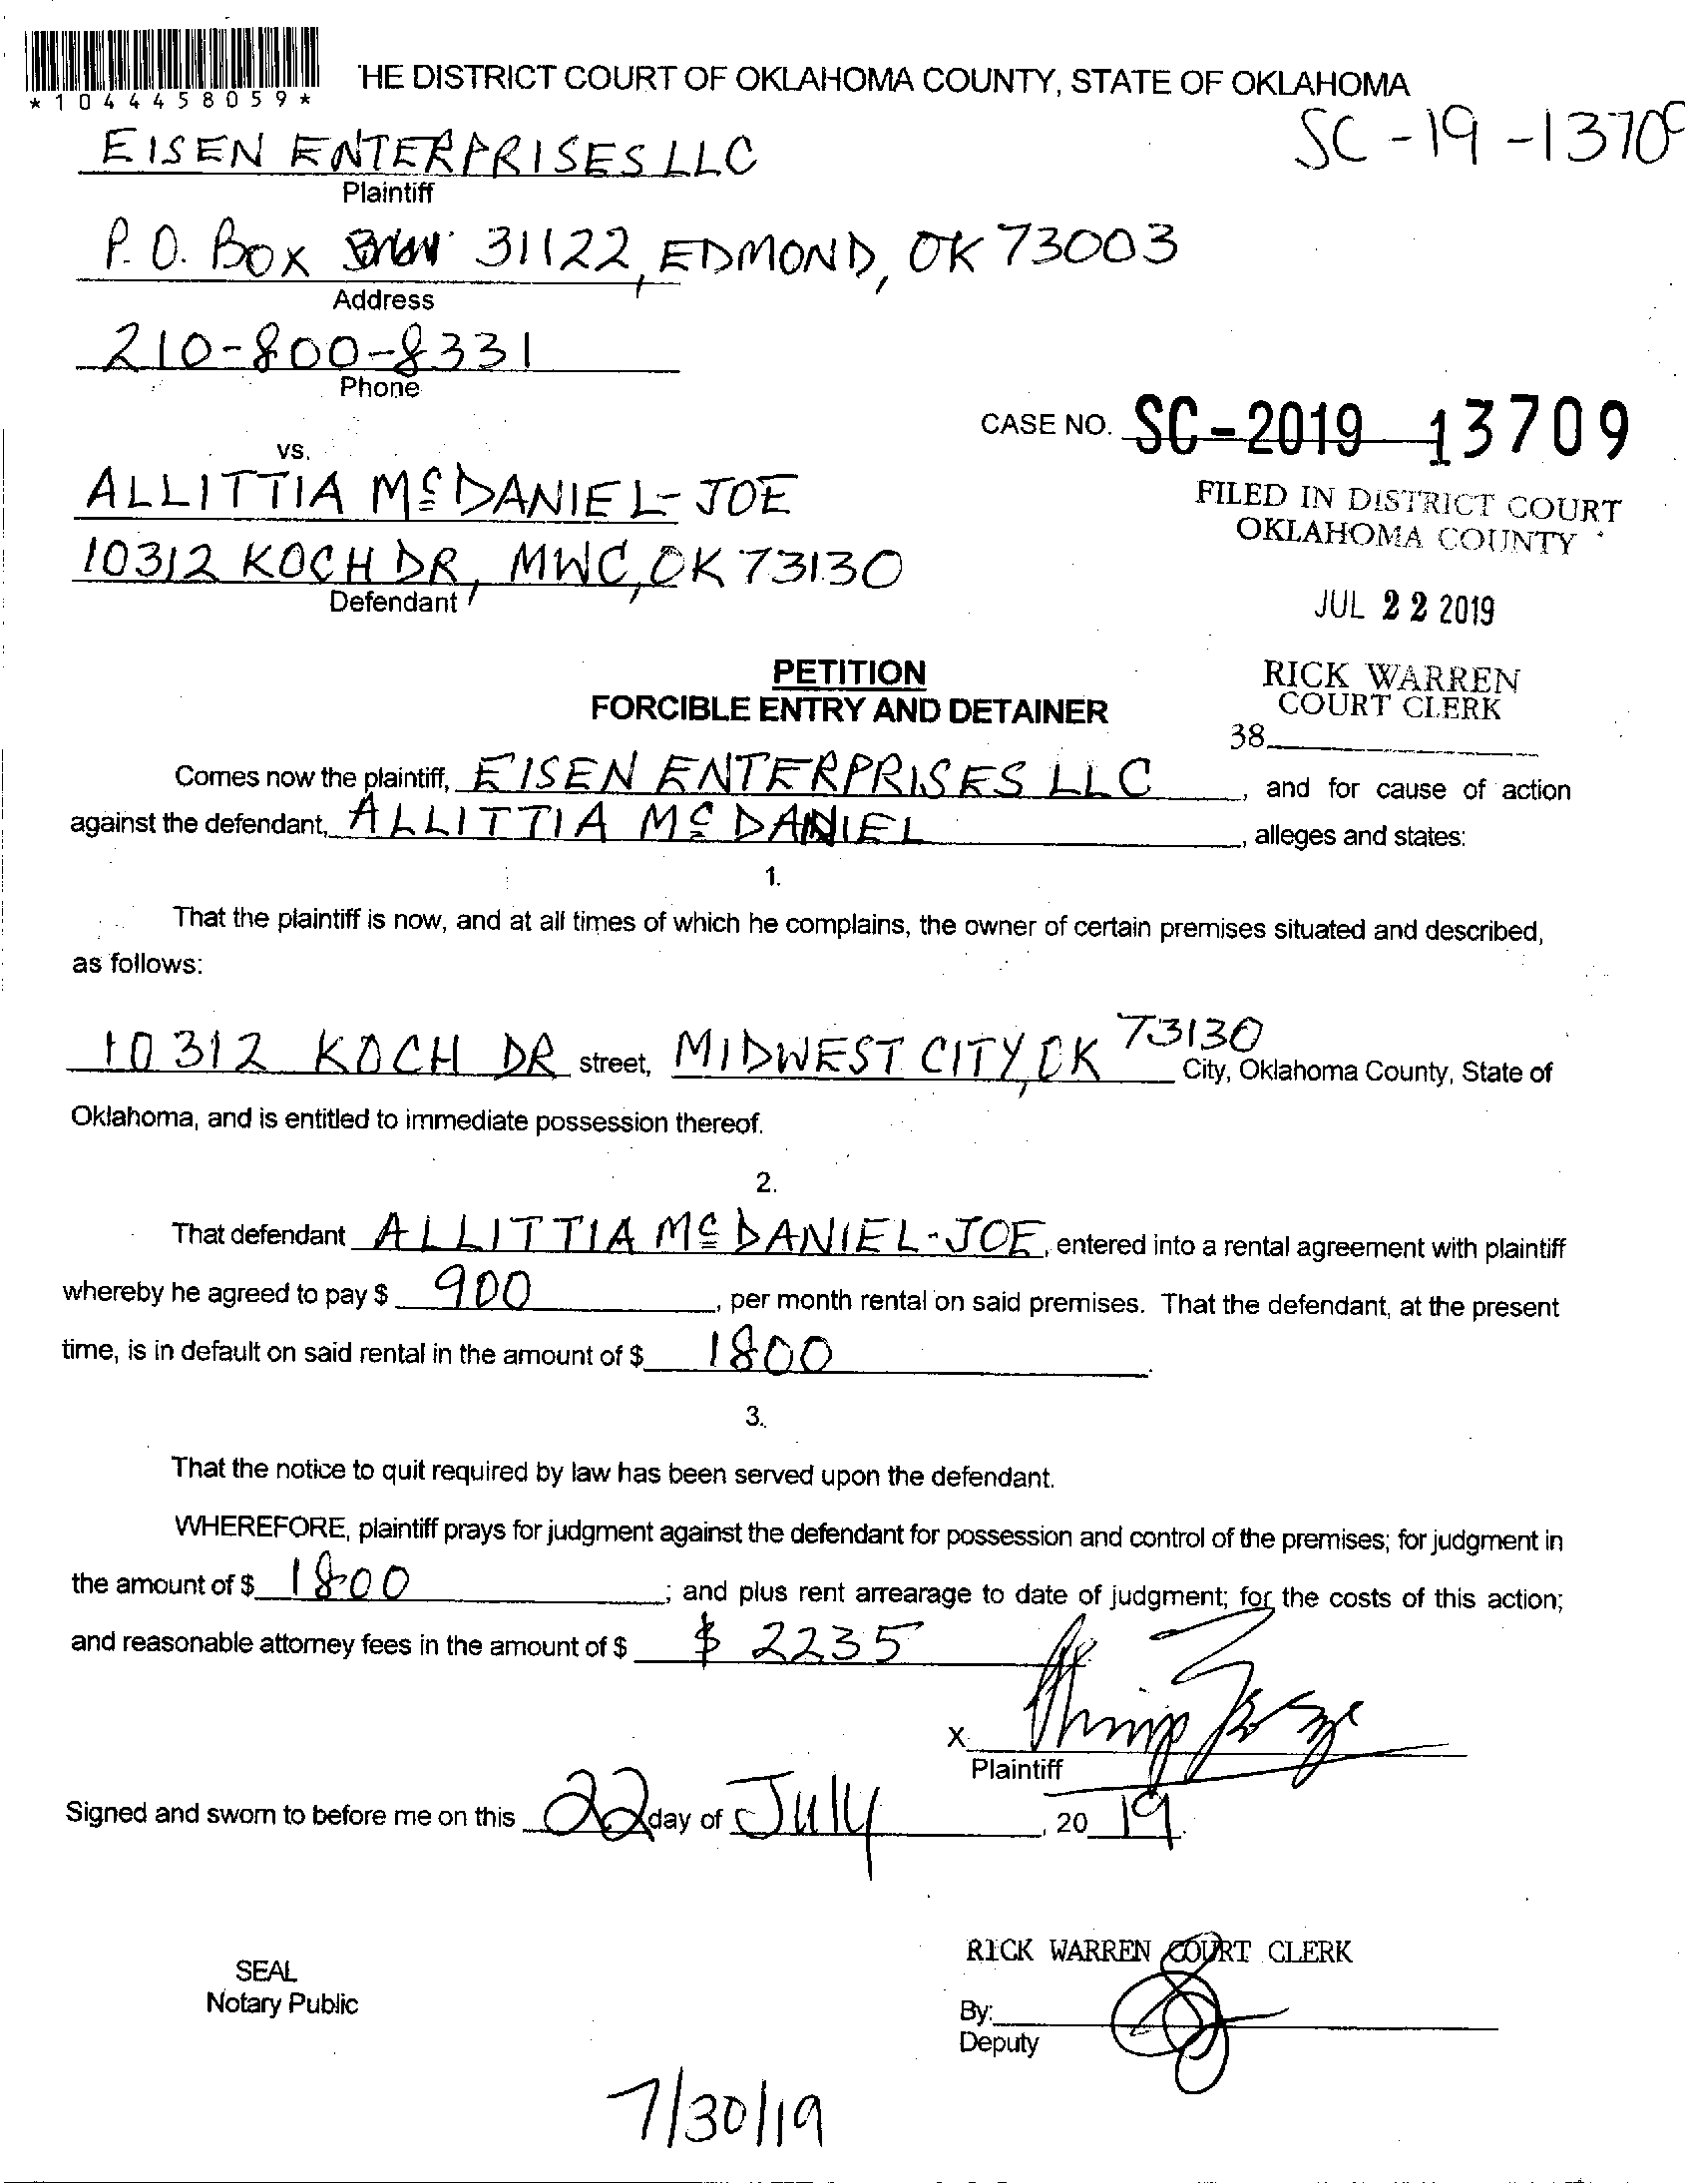 *1044458059*
HE DISTRICT COURT OF OKLAHOMA COUNTY, STATE OF OKLAHOMA
SC-19-1370
EISEN ENTERPRISES LLC
Plaintiff
P.O. BOX 31122, EDMOND, OK 73003
Address
210-800-8331
Phone
CASE NO. SC-2019 13709
vs.
ALLITTIA McDANIEL-JOE
FILED IN DISTRICT COURT
OKLAHOMA COUNTY
10312 KOCH DR, MWC, OK 73130
Defendant
JUL 22 2019
PETITION
FORCIBLE ENTRY AND DETAINER
RICK WARREN
COURT CLERK
38
Comes now the plaintiff, EISEN ENTERPRISES LLC, and for cause of action
against the defendant, ALLITTIA McDANIEL, alleges and states:
1.
That the plaintiff is now, and at all times of which he complains, the owner of certain premises situated and described,
as follows:
10312 KOCH DR street, MIDWEST CITY, OK 73130 City, Oklahoma County, State of
Oklahoma, and is entitled to immediate possession thereof.
2.
That defendant ALLITTIA McDANIEL-JOE, entered into a rental agreement with plaintiff
whereby he agreed to pay $ 900, per month rental on said premises. That the defendant, at the present
time, is in default on said rental in the amount of $ 1800.
3.
That the notice to quit required by law has been served upon the defendant.
WHEREFORE, plaintiff prays for judgment against the defendant for possession and control of the premises; for judgment in
the amount of $ 1800; and plus rent arrearage to date of judgment; for the costs of this action;
and reasonable attorney fees in the amount of $ $ 2235
X
Plaintiff
Signed and sworn to before me on this 22 day of July, 20 19.
RICK WARREN COURT CLERK
SEAL
Notary Public
By:
Deputy
7/30/19